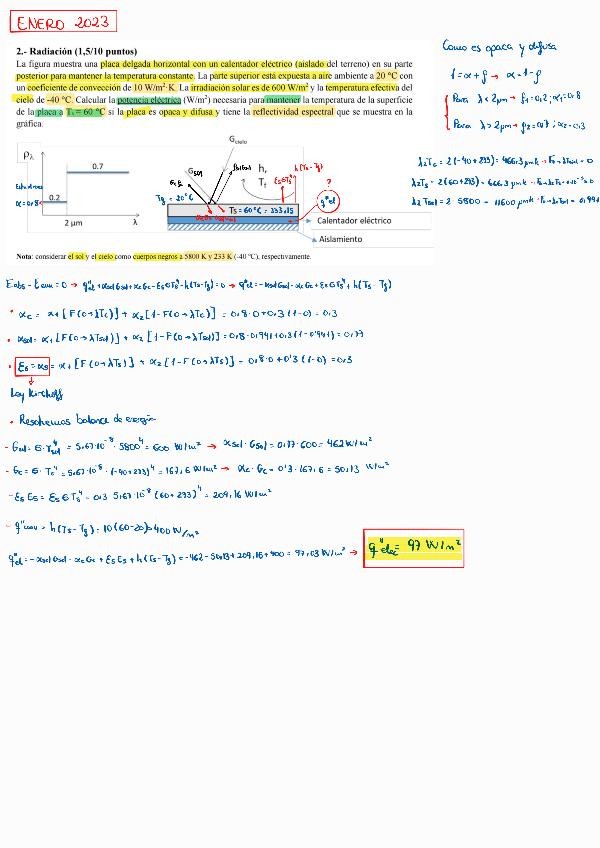 ENERO 2023
2.- Radiación (1,5/10 puntos)
La figura muestra una placa delgada horizontal con un calentador eléctrico (aislado del terreno) en su parte
posterior para mantener la temperatura constante. La parte superior está expuesta a aire ambiente a 20 ºC con
un coeficiente de convección de 10 W/m²·K. La irradiación solar es de 600 W/m² y la temperatura efectiva del
cielo de -40 ºC. Calcular la potencia eléctrica (W/m²) necesaria para mantener la temperatura de la superficie
de la placa a Ts = 60 ºC si la placa es opaca y difusa y tiene la reflectividad espectral que se muestra en la
gráfica.
Como es opaca y difusa
1 = α + ρ → α = 1 - ρ
Para λ < 2 μm → ρ1 = 0,2; α1 = 0,8
Para λ > 2 μm → ρ2 = 0,7; α2 = 0,3
ρλ
0.7
0.2
2 μm
λ
Gcielo
Gsol
h,
Tf
h(Ts - Tf)
εsσTs⁴
?
q"el
Tf = 20°C
Ts = 60 ºC = 333,15
Calentador eléctrico
Aislamiento
Nota: considerar el sol y el cielo como cuerpos negros a 5800 K y 233 K (-40 ºC), respectivamente.
Eabs - Eem = 0 → q"el + αsol Gsol + αc Gc - EsσTs⁴ - h(Ts - Tf) = 0 → q"el = -αsol Gsol - αc Gc + EsσTs⁴ + h(Ts - Tf)
• αc = α1 [F(0→λTc)] + α2 [1 - F(0→λTc)] = 0,8·0 + 0,3(1-0) = 0,3
• αsol = α1 [F(0→λTsol)] + α2 [1 - F(0→λTsol)] = 0,8·0,941 + 0,3(1-0,941) = 0,77
• Es = αs = α1 [F(0→λTs)] + α2 [1 - F(0→λTs)] = 0,8·0 + 0'3(1-0) = 0,3
Ley Kirchoff
• Resolvemos balance de energía
- Gsol = σ·Tsol⁴ = 5,67·10⁻⁸·5800⁴ = 600 W/m² → αsol·Gsol = 0,77·600 = 462 W/m²
- Gc = σ·Tc⁴ = 5,67·10⁻⁸·(-40+273)⁴ = 167,6 W/m² → αc·Gc = 0'3·167,6 = 50,13 W/m²
- Es Es = EsσTs⁴ = 0,3·5,67·10⁻⁸(60+273)⁴ = 209,16 W/m²
- q"conv = h(Ts - Tf) = 10(60-20) = 400 W/m²
q"el = -αsol Gsol - αc Gc + Es Es + h(Ts - Tf) = -462 - 50,13 + 209,16 + 400 = 97,03 W/m² →
q"elec = 97 W/m²